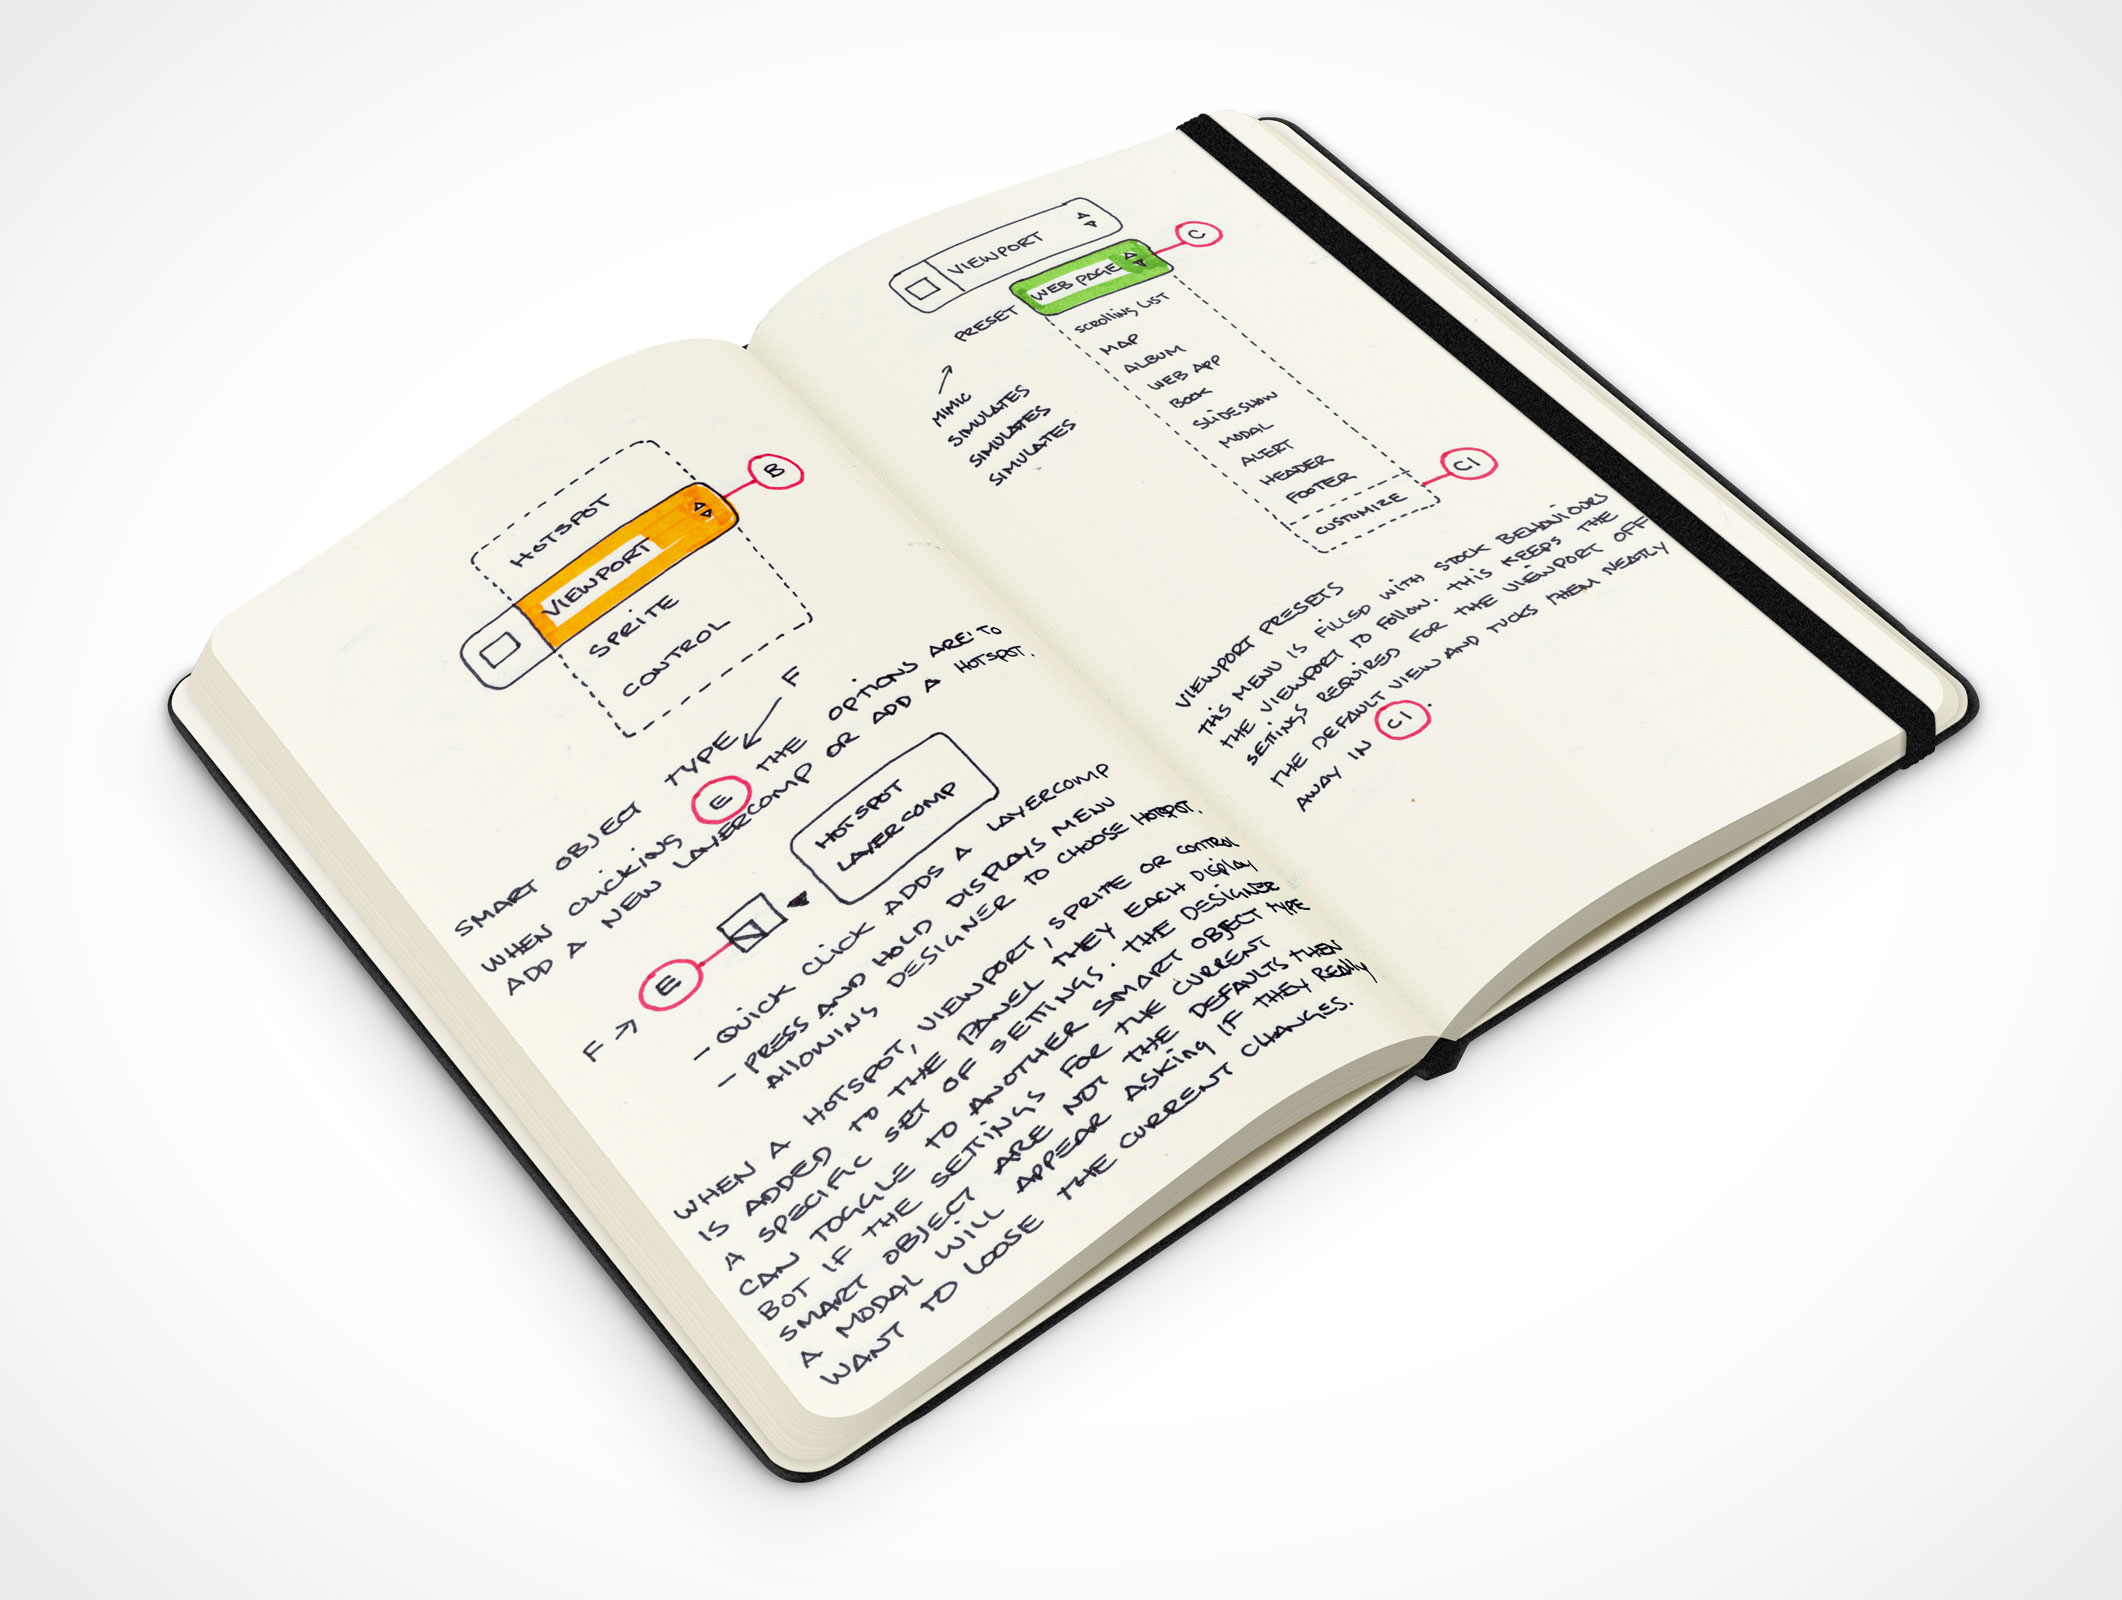 HOTSPOT
VIEWPORT
B
SPRITE
CONTROL
F
SMART OBJECT TYPE
WHEN CLICKING E THE OPTIONS ARE: TO
ADD A NEW LAYERCOMP OR ADD A HOTSPOT.
HOTSPOT
LAYERCOMP
F → E
– QUICK CLICK ADDS A LAYERCOMP
– PRESS AND HOLD DISPLAYS MENU
ALLOWING DESIGNER TO CHOOSE HOTSPOT.
WHEN A HOTSPOT, VIEWPORT, SPRITE OR CONTROL
IS ADDED TO THE PANEL THEY EACH DISPLAY
A SPECIFIC SET OF SETTINGS. THE DESIGNER
CAN TOGGLE TO ANOTHER SMART OBJECT TYPE
BOT IF THE SETTINGS FOR THE CURRENT
SMART OBJECT ARE NOT THE DEFAULTS THEN
A MODAL WILL APPEAR ASKING IF THEY REALLY
WANT TO LOOSE THE CURRENT CHANGES.
VIEWPORT
C
PRESET
WEB PAGE
SCROLLING LIST
MAP
ALBUM
WEB APP
BOOK
SLIDESHOW
MODAL
ALERT
HEADER
FOOTER
CUSTOMIZE
C1
MIMIC
SIMULATES
SIMULATES
SIMULATES
VIEWPORT PRESETS
THIS MENU IS FILLED WITH STOCK BEHAVIOURS
THE VIEWPORT TO FOLLOW. THIS KEEPS THE
SETINGS REQUIRED FOR THE VIEWPORT OFF
THE DEFAULT VIEW AND TUCKS THEM NEATLY
AWAY IN C1.